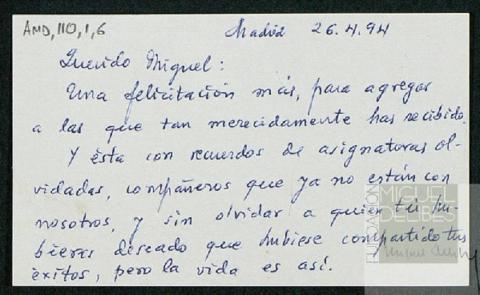 AMD,110,1,6
Madrid 26.4.94
Querido Miguel:
Una felicitación más, para agregar
a las que tan merecidamente has recibido.
Y ésta con recuerdos de asignaturas ol-
vidadas, compañeros que ya no están con
nosotros, y sin olvidar a quien tú hu-
bieras deseado que hubiese compartido tus
éxitos, pero la vida es así.
FUNDACIÓN
MIGUEL
DELIBES